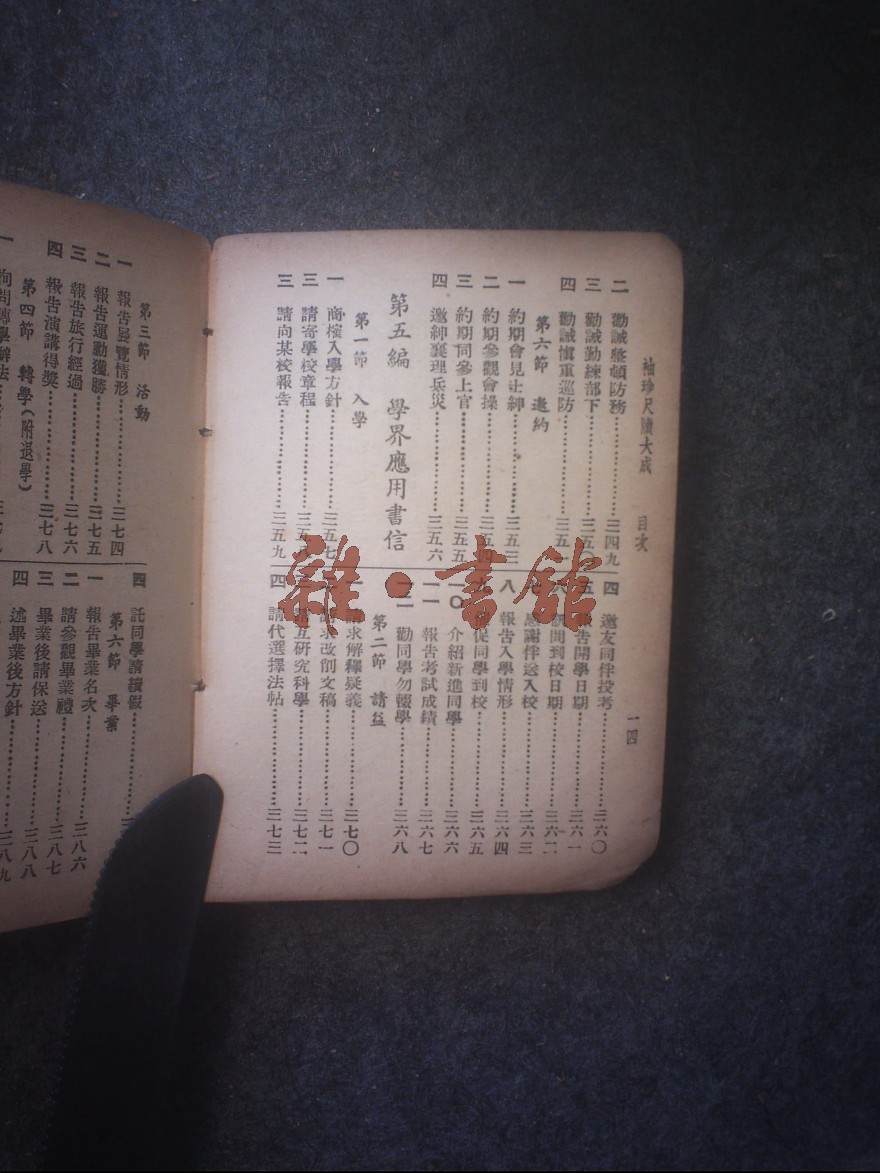 袖珍尺牘大成 目次 一四
二 勸誡整頓防務……三四九
三 勸誡勤練部下……三五
四 勸誡慎重巡防……三五一
第六節 邀約
一 約期會見士紳……三五三
二 約期參觀會操……三五四
三 約期同參上官……三五五
四 邀紳襄理兵災……三五六
第五編 學界應用書信
第一節 入學
一 商榷入學方針……三五七
三 請寄學校章程……三五
三 請向某校報告……三五九
四 邀友同伴投考……三六〇
五 報告開學日期……三六一
問到校日期……三六二
七 感謝伴送入校……三六三
八 報告入學情形……三六四
九 催促同學到校……三六五
一〇 介紹新進同學……三六六
一一 報告考試成績……三六七
一二 勸同學勿輟學……三六八
第二節 請益
一 請求解釋疑義……三七〇
請求改削文稿……三七一
請互研究科學……三七二
四 請代選擇法帖……三七三
第三節 活動
一 報告展覽情形……三七四
二 報告運動獲勝……三七五
三 報告旅行經過……三七六
四 報告演講得獎……三七八
第四節 轉學(附退學)
一 詢問轉學辦法
四 託同學請續假
第六節 畢業
一 報告畢業名次……三八六
二 請參觀畢業禮……三八七
三 畢業後請保送……三八八
四 述畢業後方針……三八九
雜·書館